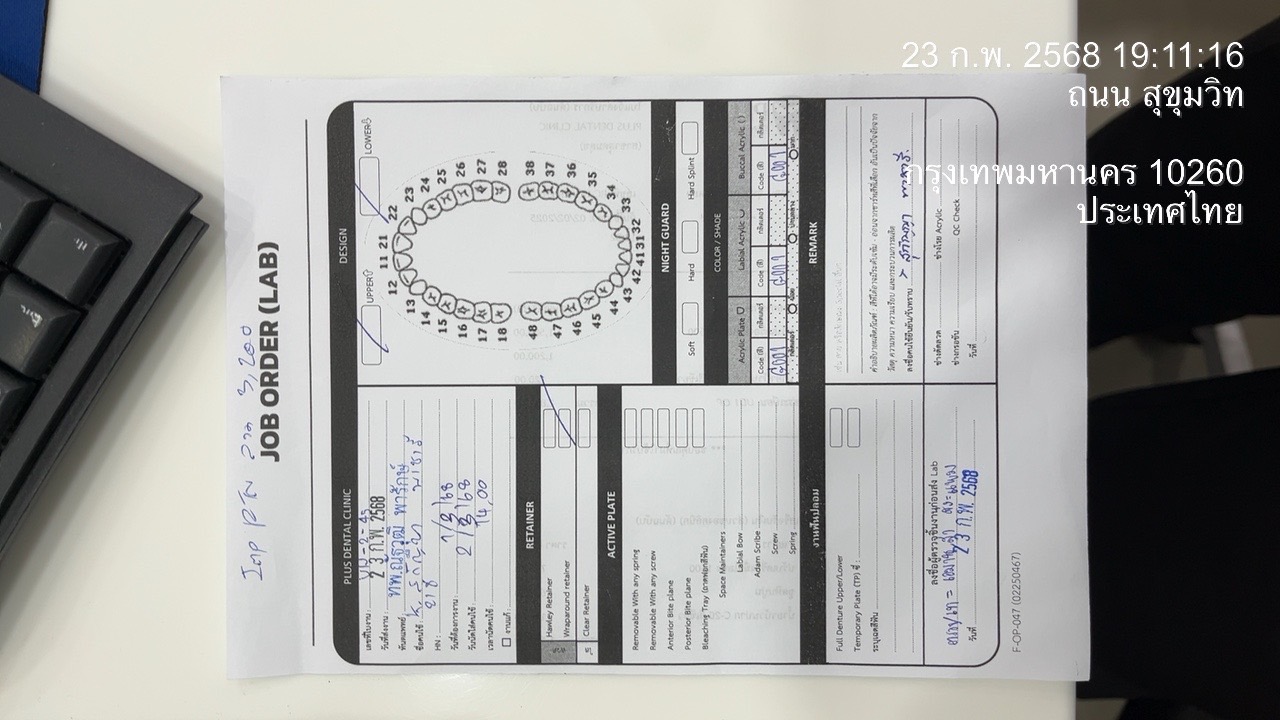 3,200
JOB ORDER (LAB)
PLUS DENTAL CLINIC
เลขที่ใบงาน :
วันที่ส่งงาน : 2 3 ก.พ. 2568
ทันตแพทย์ : ทพ.ณัฐวุฒิ พารักษ์
ชื่อคนไข้ :
HN :
วันที่ต้องการงาน : 1/3/68
วันนัดใส่คนไข้ : 2/3/68
เวลานัดคนไข้ : 14,00
งานแก้ :
RETAINER
ลวด
Hawley Retainer
Wraparound retainer
ใส
Clear Retainer
ACTIVE PLATE
Removable With any spring
Removable With any screw
Anterior Bite plane
Posterior Bite plane
Bleaching Tray (ถาดฟอกสีฟัน)
Space Maintainers
Labial Bow
Adam Scribe
Screw
Spring
งานฟันปลอม
Full Denture Upper/Lower
Temporary Plate (TP) ซี่ :
ระบุเฉดสีฟัน
ลงชื่อผู้ตรวจชิ้นงานก่อนส่ง Lab
วันที่ 2 3 ก.พ. 2568
DESIGN
UPPER LOWER
11 21
12 22
13 23
14 24
15 25
16 26
17 27
18 28
48 38
47 37
46 36
45 35
44 34
43 33
42 41 31 32
NIGHT GUARD
Soft Hard Hard Splint
COLOR / SHADE
Acrylic Plate Labial Acrylic Buccal Acrylic ( )
Code (สี) กลิตเตอร์ Code (สี) กลิตเตอร์ Code (สี) กลิตเตอร์
G001 G001 G001
กลิตเตอร์ น้อย ปานกลาง มาก
REMARK
คำอธิบายผลิตภัณฑ์ : สีที่ได้อาจมีระดับเข้ม - อ่อนจากชาร์ทสีที่เลือก อันเป็นปัจจัยจาก
วัสดุ ความหนา ความเรียบ และกระบวนการผลิต
ลงชื่อคนไข้ยืนยัน/รับทราบ
ช่างดัดลวด ช่างโรย Acrylic
ช่างกรอขัด QC Check
วันที่
F-OP-047 (02250467)
23 ก.พ. 2568 19:11:16
ถนน สุขุมวิท
กรุงเทพมหานคร 10260
ประเทศไทย